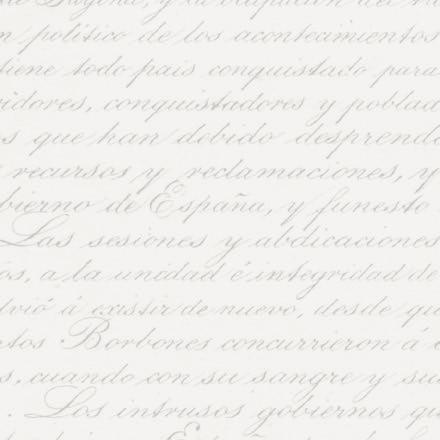 Laguna, y la ocupación del
n político de los acontecimientos
tiene todo pais conquistado para
ridores, conquistadores y poblad
os que han debido desprend
recursos y reclamaciones, y
bierno de España, y funesto
Las sesiones y abdicaciones
os, a la unidad é integridad de
lvió á existir de nuevo, desde qu
ntos Borbones concurrieron á
s, cuando con su sangre y su
. Los intrusos gobiernos qu